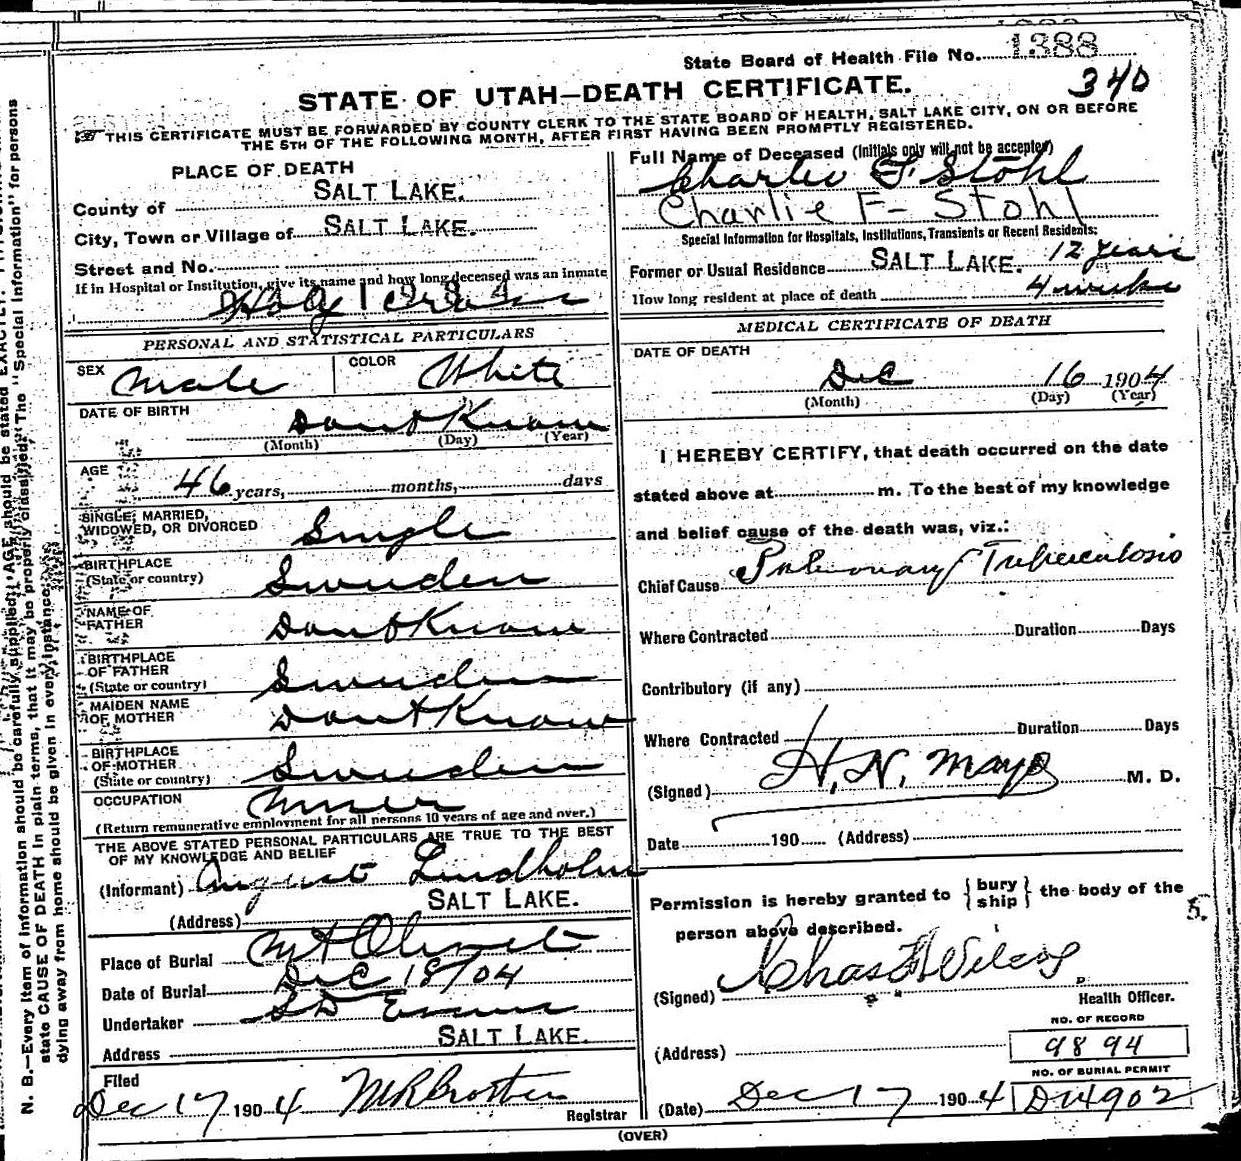 State Board of Health File No. 1388
340
STATE OF UTAH—DEATH CERTIFICATE.
THIS CERTIFICATE MUST BE FORWARDED BY COUNTY CLERK TO THE STATE BOARD OF HEALTH, SALT LAKE CITY, ON OR BEFORE
THE 5TH OF THE FOLLOWING MONTH, AFTER FIRST HAVING BEEN PROMPTLY REGISTERED.
PLACE OF DEATH
County of SALT LAKE.
City, Town or Village of SALT LAKE.
Street and No.
If in Hospital or Institution, give its name and how long deceased was an inmate
Holy Cross
PERSONAL AND STATISTICAL PARTICULARS
SEX Male COLOR White
DATE OF BIRTH Dont Know
(Month) (Day) (Year)
AGE 46 years, months, days
SINGLE, MARRIED,
WIDOWED, OR DIVORCED Single
BIRTHPLACE
(State or country) Sweden
NAME OF
FATHER Dont Know
BIRTHPLACE
OF FATHER
(State or country) Sweden
MAIDEN NAME
OF MOTHER Dont Know
BIRTHPLACE
OF MOTHER
(State or country) Sweden
OCCUPATION Miner
(Return remunerative employment for all persons 10 years of age and over.)
THE ABOVE STATED PERSONAL PARTICULARS ARE TRUE TO THE BEST
OF MY KNOWLEDGE AND BELIEF
(Informant) August Lindholm
(Address) SALT LAKE.
Place of Burial Mt Olivet
Date of Burial Dec 18/04
Undertaker Evans
Address SALT LAKE.
Filed
Dec 17 1904
Registrar
Full Name of Deceased (Initials only will not be accepted)
Charlie F. Stohl
Charlie F- Stohl
Special Information for Hospitals, Institutions, Transients or Recent Residents:
Former or Usual Residence SALT LAKE. 12 years
How long resident at place of death 4 weeks
MEDICAL CERTIFICATE OF DEATH
DATE OF DEATH
Dec 16 1904
(Month) (Day) (Year)
I HEREBY CERTIFY, that death occurred on the date
stated above at m. To the best of my knowledge
and belief cause of the death was, viz.:
Chief Cause Pulmonary Tuberculosis
Where Contracted Duration Days
Contributory (if any)
Where Contracted Duration Days
(Signed) H. N. Mayo M. D.
Date 190 (Address)
Permission is hereby granted to {bury
ship} the body of the
person above described.
5.
(Signed) Chas Wilcox
Health Officer.
NO. OF RECORD
(Address) 9894
NO. OF BURIAL PERMIT
(Date) Dec 17 1904 D4902
(OVER)
N. B.—Every item of information should be carefully supplied; AGE should be stated EXACTLY.
state CAUSE OF DEATH in plain terms, that it may be properly classified. The "Special Information" for persons
dying away from home should be given in every instance.